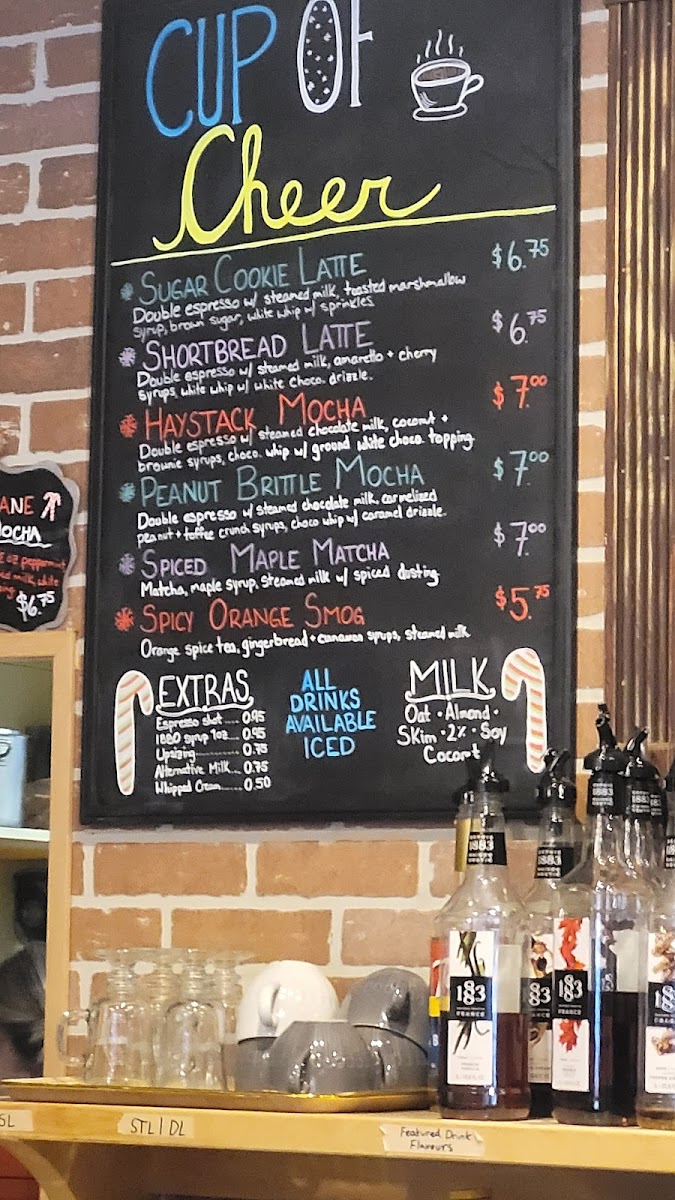 CUP OF
Cheer
SUGAR COOKIE LATTE $6.75
Double espresso w/ steamed milk, toasted marshmallow
syrup, brown sugar, white whip w/ sprinkles
SHORTBREAD LATTE $6.75
Double espresso w/ steamed milk, amaretto + cherry
syrups, white whip w/ white choco. drizzle.
HAYSTACK MOCHA $7.00
Double espresso w/ steamed chocolate milk, coconut +
brownie syrups, choco. whip w/ ground white choco. topping
PEANUT BRITTLE MOCHA $7.00
Double espresso w/ steamed chocolate milk, carmelized
peanut + toffee crunch syrups, choco whip w/ caramel drizzle.
SPICED MAPLE MATCHA $7.00
Matcha, maple syrup, steamed milk w/ spiced dusting
SPICY ORANGE SMOG $5.75
Orange spice tea, gingerbread + cinnamon syrups, steamed milk
EXTRAS
Espresso shot .... 0.95
1880 syrup 1oz ... 0.95
Upsizing ........ 0.75
Alternative Milk... 0.75
Whipped Cream ...... 0.50
ALL
DRINKS
AVAILABLE
ICED
MILK
Oat · Almond ·
Skim · 2% · Soy
Coconut
ANE
MOCHA
peppermint
milk, white
$6.75
1883
1883
1883
1883
1883
FRANCE
1883
1883
FRANCE
1883
SL
STL | DL
Featured Drink
Flavours